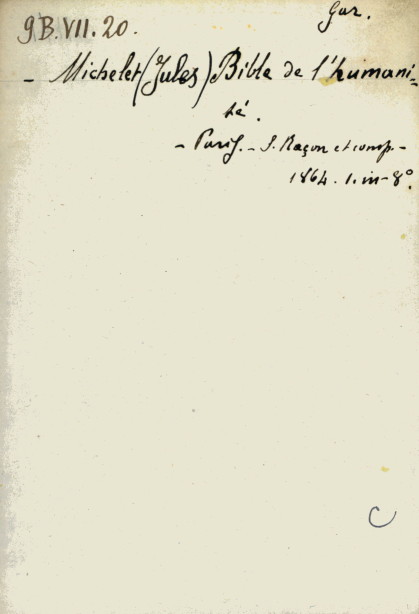 Gar.
9B.VII.20.
- Michelet (Jules) Bible de l'humani-
té.
- Paris. - S. Raçon et comp. -
1864. 1. in-8°.
C